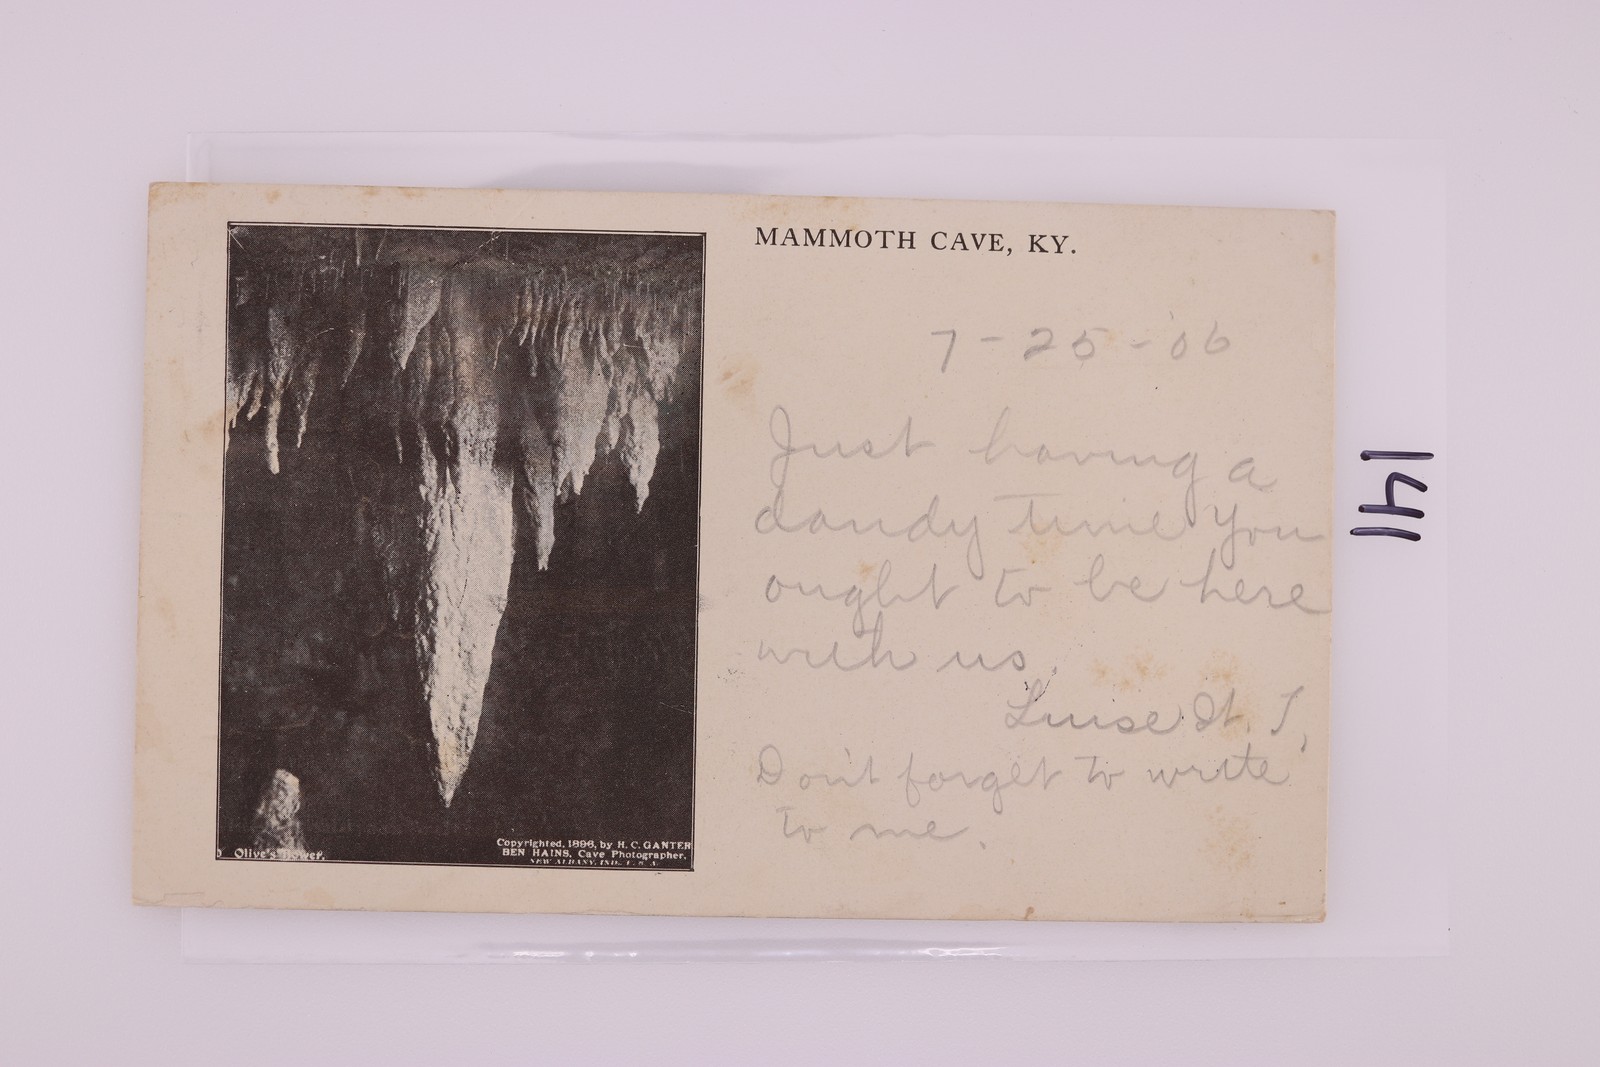 MAMMOTH CAVE, KY.
7-25-'06
Just having a
dandy time You
ought to be here
with us.
Luise St. T,
Don't forget to write
to me.
Olive's Bower.
Copyrighted, 1896, by H. C. GANTER
BEN HAINS, Cave Photographer.
NEW ALBANY, IND., U. S. A.
141